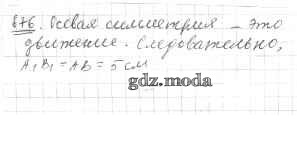 876. Осевая симметрия – это
движение. Следовательно,
A₁B₁ = AB = 5 см
gdz.moda